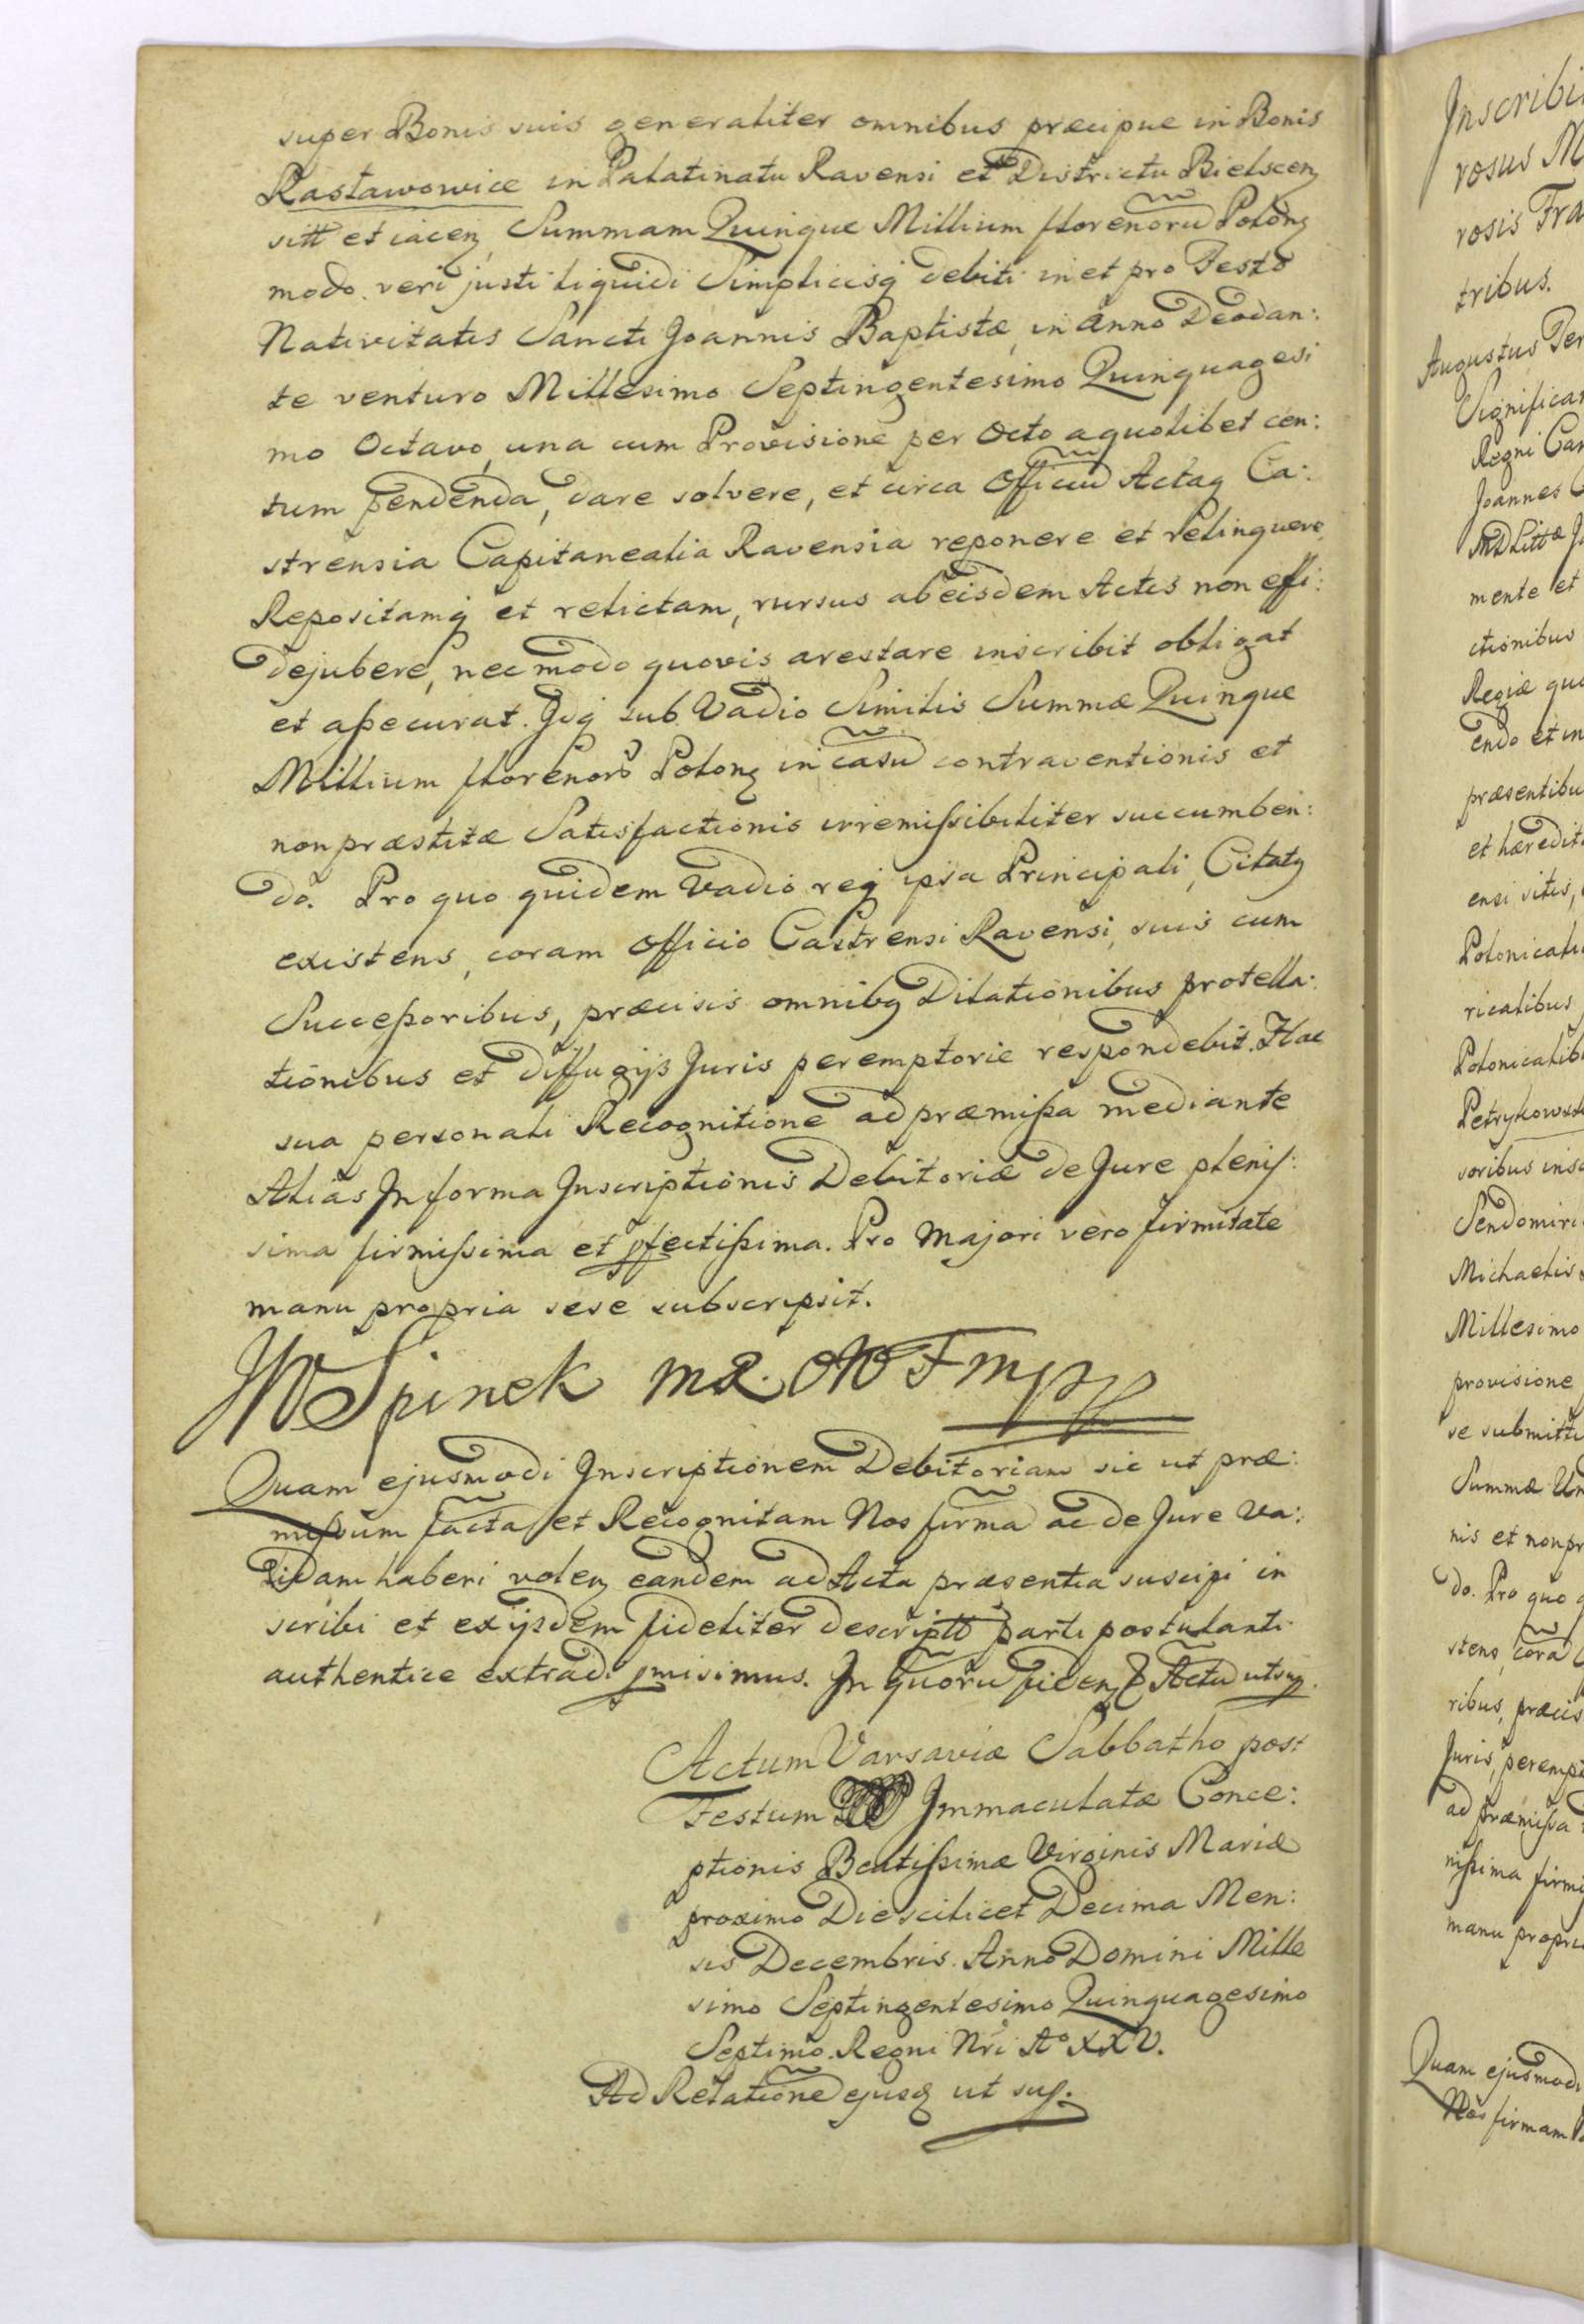 super Bonis suis generaliter omnibus præcipue in Bonis
Rastawowice in Palatinatu Ravensi et Districtu Bielscen
sitt et iacen, Summam Quinque Millium florenorũ Polon
modo veri justi liquidi Simplicisq debiti in et pro Festo
Nativitatis Sancti Joannis Baptistæ, in Anno Deodan:
te venturo Millesimo Septingentesimo Quinquagesi
mo Octavo, una cum Provisione per Octo a quolibet cen:
tum pendenda, dare solvere, et circa Officiũ Actaq Ca:
strensia Capitanealia Ravensia reponere et relinquere,
Repositamq et relictam, rursus ab eisdem Actis non effi:
dejubere, nec modo quovis arestare inscribit obligat
et aßecurat. Idq sub Vadio Similis Summæ Quinque
Millium florenorũ Polon in casũ contraventionis et
non præstitæ Satisfactionis irremißibiliter succumben:
do. Pro quo quidem Vadio req ipsa Principali, Citatq
existens, coram Officio Castrensi Ravensi, suis cum
Succeßoribus, præcisis omnibq Dilationibus protella:
tionibus et diffugijs Juris peremptorie respondebit. Hac
sua personali Recognitione ad præmißa mediante
Alias In forma Inscriptionis Debitoriæ de Jure plenis:
sima firmißima et pfectißima. Pro Majori vero firmitate
manu propria sese subscripsit.
JWSpinek
Quam ejusmodi Inscriptionem Debitoriam sic ut præ:
mißum factã et Recognitam Nos firmã ac de Jure va:
lidam haberi volen eandem ad Acta præsentia suscipi in
scribi et ex ijsdem fideliter descriptt parti postulanti
authentice extradi pmisimus. In quorũ fidem & Actũ ut sup.
Actum Varsaviæ Sabbatho post
Festum Immaculatæ Conce:
ptionis Beatißimæ Virginis Mariæ
proximo Die scilicet Decima Men:
sis Decembris. Anno Domini Mille
simo Septingentesimo Quinquagesimo
Septimo. Regni Nri Aº XXV.
Ad Relationẽ ejusq ut sup.
Inscribi
rosus M
rosis Fra
tribus.
Augustus Ter
Significa
Regni Can
Joannes
mente et
ctionibus
Regiæ qu
endo et in
præsentibu
et hæredit
ensi sitis,
Polonicali
ricalibus
Polonicalib
Petrykows
soribus ins
Sendomiri
Michaelis
Millesimo
provisione
se submitti
Summæ Un
nis et non pr
do. Pro quo q
stens, corã
ribus, præcis
Juris, peremp
ad præmißa
nißima firmi
manu propri
Quam ejusmodi
Nos firmam